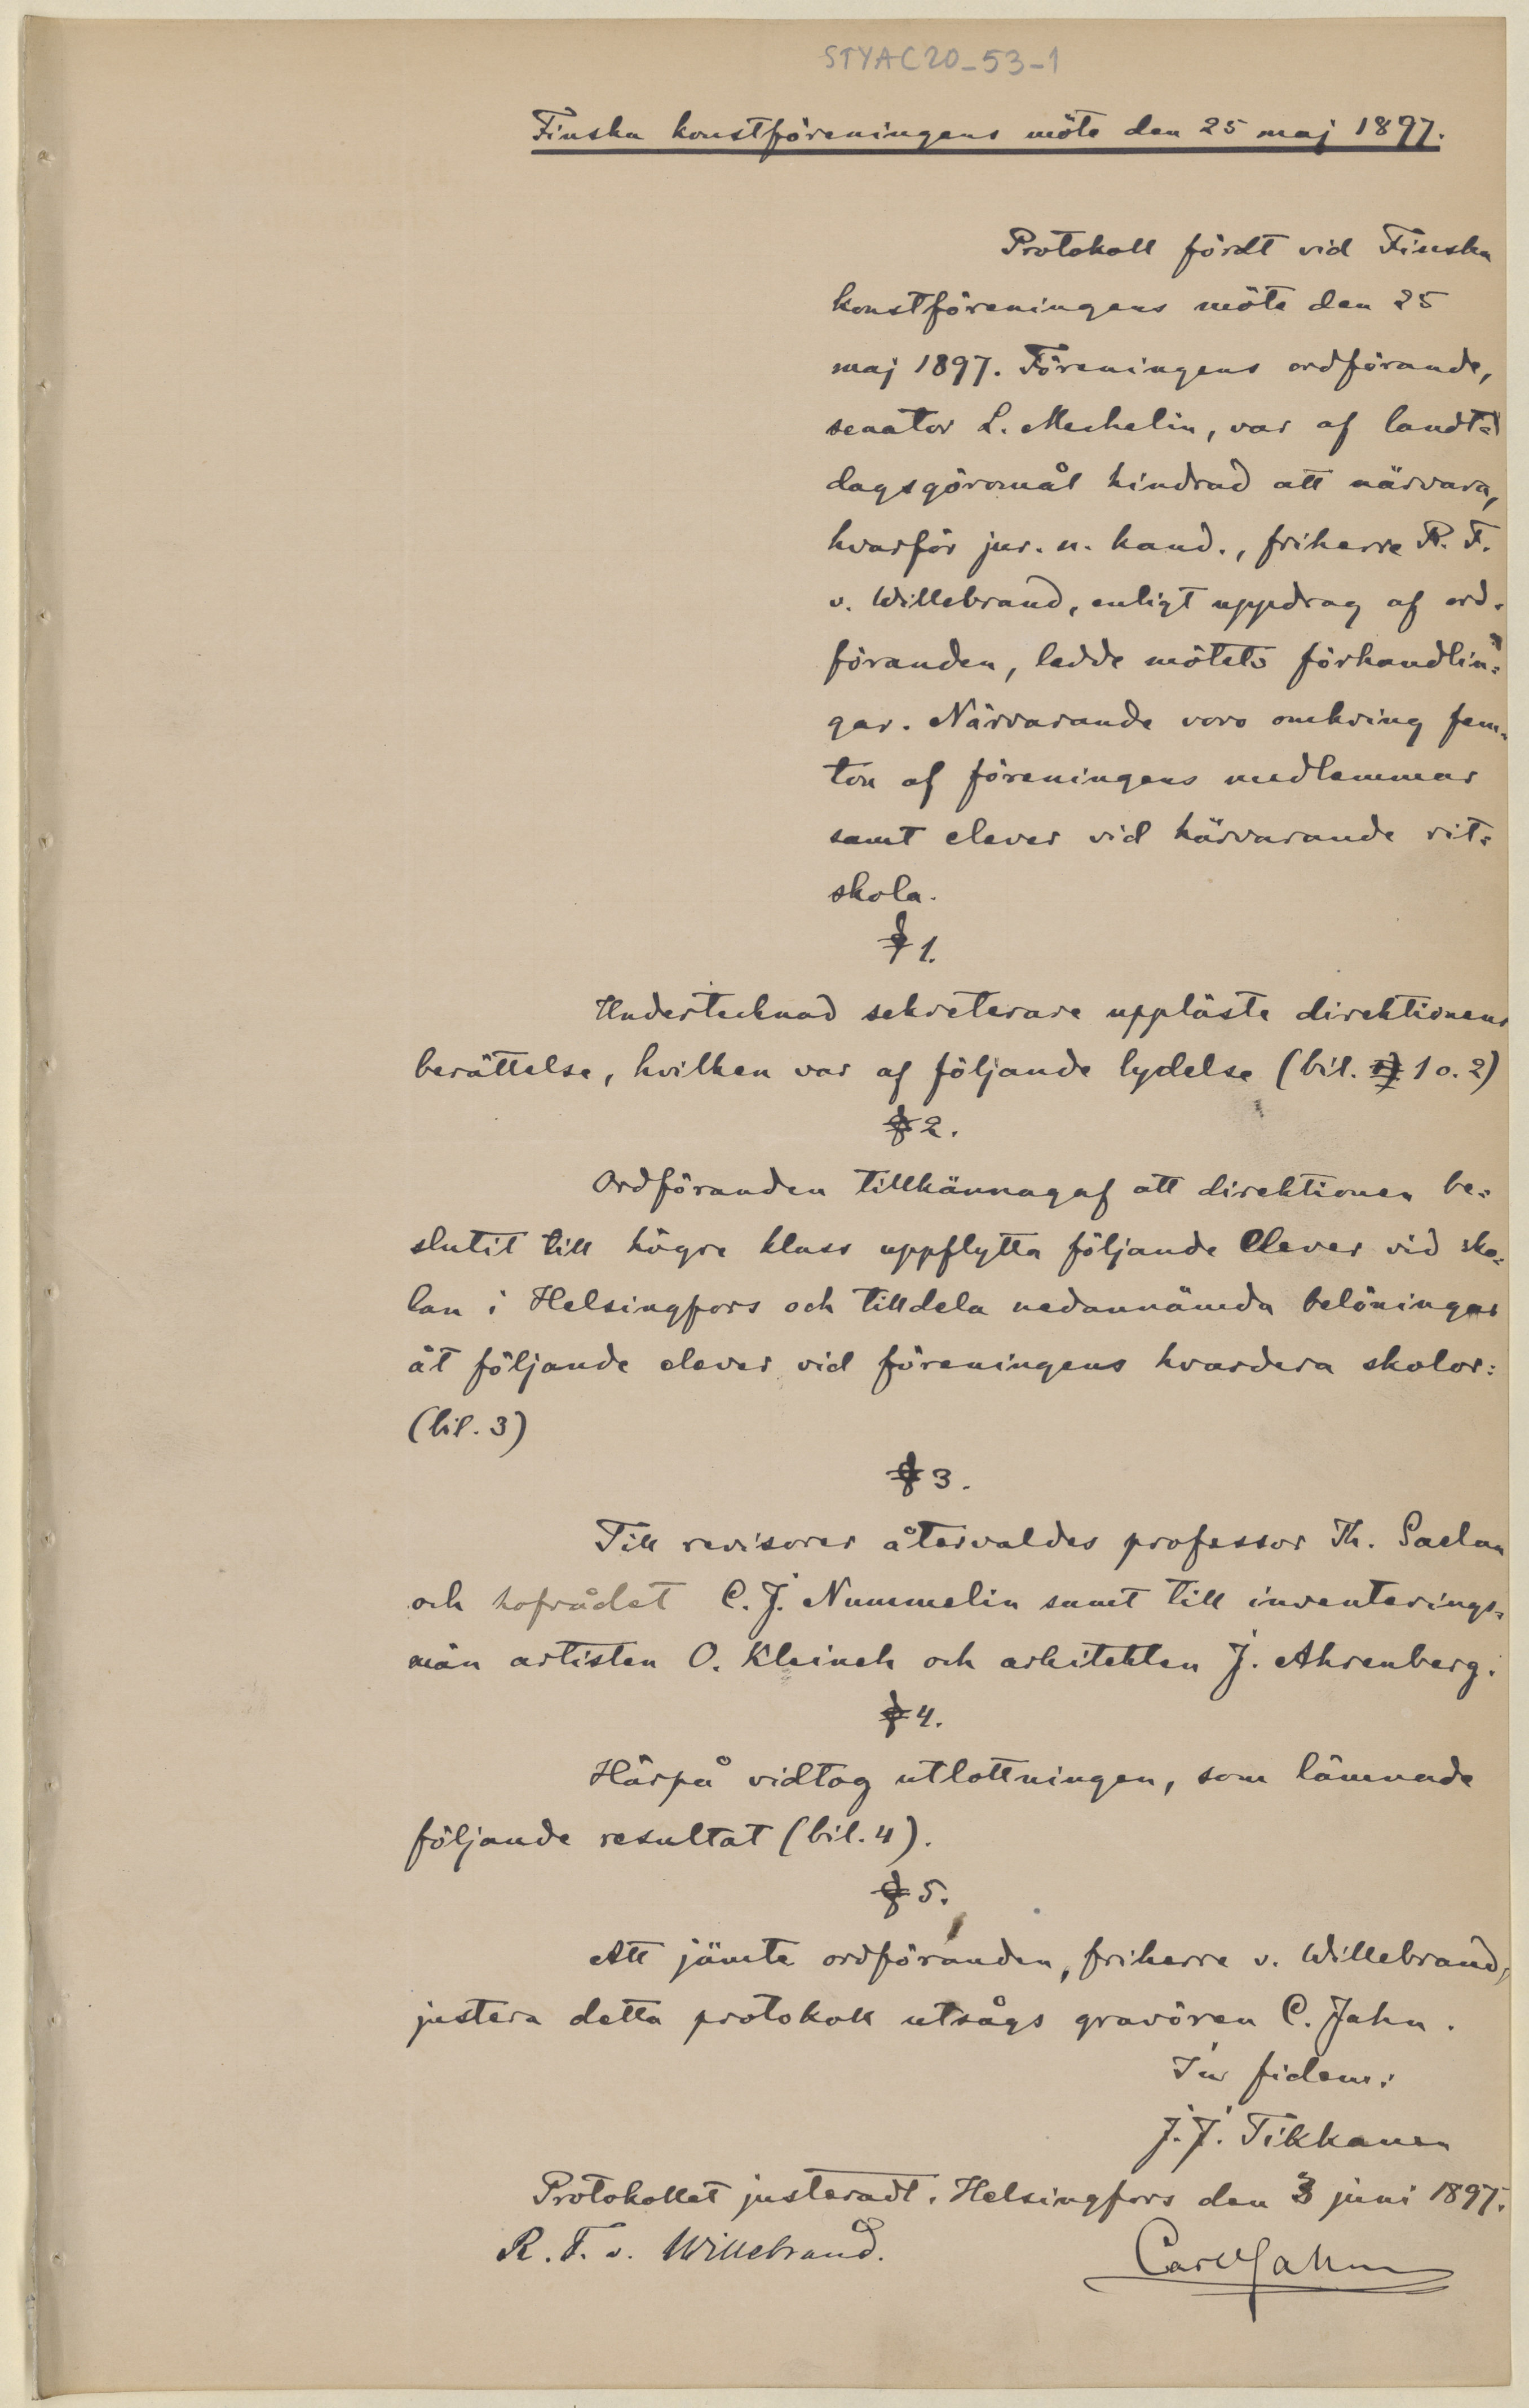 STYAC20_53_1
Finska konstföreningens möte den 25 maj 1897.
Protokoll fördt vid Finska
konstföreningens möte den 25
maj 1897. Föreningens ordförande,
senator L. Mechelin, var af landt=
dagsgöromål hindrad att närvara,
hvarför jur. u. kand., friherre R. F.
v. Willebrand, enligt uppdrag af ord-
föranden, ledde mötets förhandlin=
gar. Närvarande voro omkring fem-
ton af föreningens medlemmar
samt elever vid härvarande rit=
skola.
§ 1.
Undertecknad sekreterare uppläste direktionens
berättelse, hvilken var af följande lydelse (bil. 1 o. 2)
§ 2.
Ordföranden tillkännagaf att direktionen be=
slutit till högre klass uppflytta följande Elever vid sko=
lan i Helsingfors och tilldela nedannämda belöningar
åt följande elever vid föreningens hvardera skolor:
(bil. 3)
§ 3.
Till revisorer återvaldes professor Th. Saelan
och hofrådet C. J. Nummelin samt till inventerings=
män artisten O. Kleineh och arkitekten J. Ahrenberg.
§ 4.
Härpå vidtog utlottningen, som lämnade
följande resultat (bil. 4).
§ 5.
Att jämte ordföranden, friherre v. Willebrand,
justera detta protokoll utsågs gravören C. Jahn.
In fidem:
J. J. Tikkanen
Protokollet justeradt. Helsingfors den 3 juni 1897.
R. F. v. Willebrand.
Carl Jahn